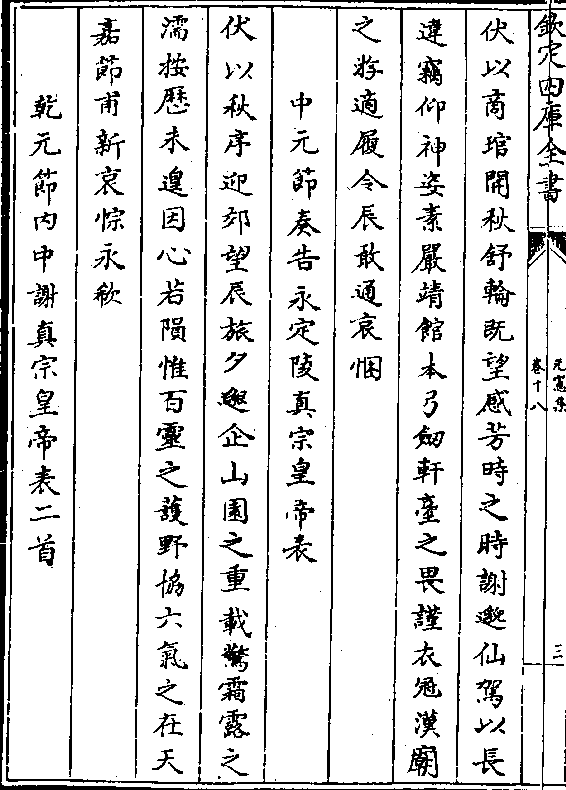 欽定四庫全書
元憲集
卷十八
三
伏以商琯開秋舒輪既望感芳時之時謝邈仙駕以長
違竊仰神姿素嚴靖館本弓劒軒臺之畏謹衣冠漢廟
之游適履令辰敢通哀悃
中元節奏告永定陵真宗皇帝表
伏以秋序迎郊望辰旅夕邈企山園之重載驚霜露之
濡按歷未遑因心若隕惟百靈之護野協六氣之在天
嘉節甫新哀悰永欷
乾元節内中謝真宗皇帝表二首